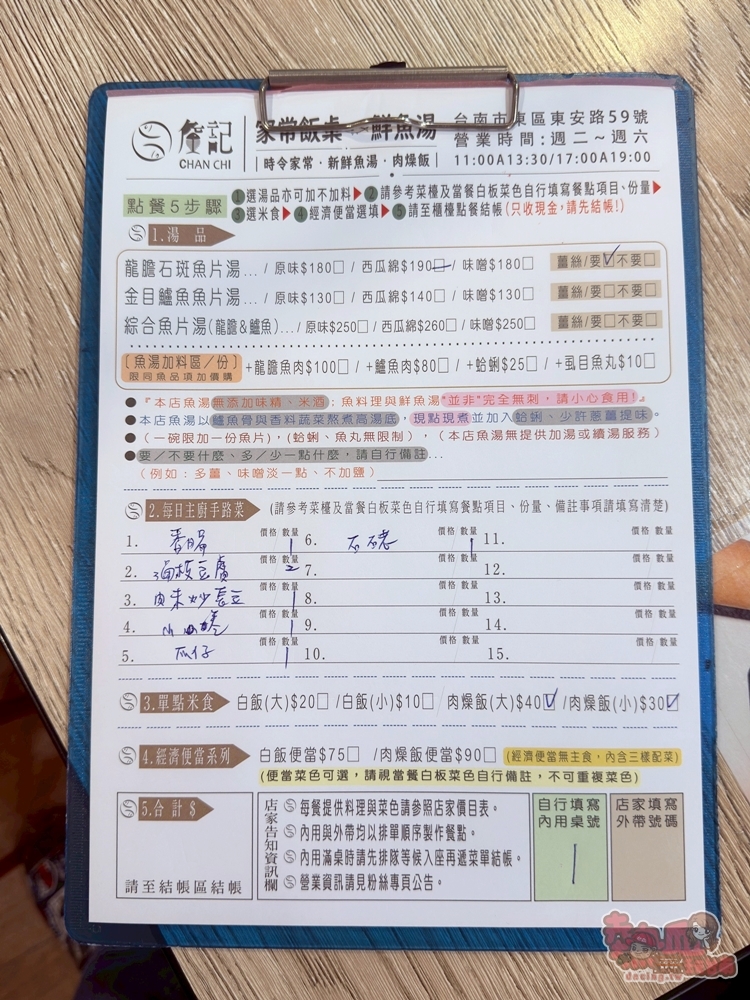 詹記
CHAN CHI
家常飯桌 鮮魚湯
時令家常·新鮮魚湯·肉燥飯
台南市東區東安路59號
營業時間:週二~週六
11:00A13:30/17:00A19:00
點餐5步驟
❶選湯品亦可加不加料▶❷請參考菜檯及當餐白板菜色自行填寫餐點項目、份量▶
❸選米食▶❹經濟便當選填▶❺請至櫃檯點餐結帳(只收現金,請先結帳!)
1.湯品
龍膽石斑魚片湯.../原味$180□/西瓜綿$190□/味噌$180□ 薑絲/要☑不要□
金目鱸魚魚片湯.../原味$130□/西瓜綿$140□/味噌$130□ 薑絲/要□不要□
綜合魚片湯(龍膽&鱸魚).../原味$250□/西瓜綿$260□/味噌$250□ 薑絲/要□不要□
〔魚湯加料區/份〕+龍膽魚肉$100□/+鱸魚肉$80□/+蛤蜊$25□/+虱目魚丸$10□
限同魚品項加價購
●『本店魚湯無添加味精、米酒;魚料理與鮮魚湯"並非"完全無刺,請小心食用!』
●本店魚湯以鱸魚骨與香料蔬菜熬煮高湯底,現點現煮並加入蛤蜊、少許蔥薑提味。
●(一碗限加一份魚片),(蛤蜊、魚丸無限制),(本店魚湯無提供加湯或續湯服務)
●要/不要什麼、多/少一點什麼,請自行備註...
(例如:多薑、味噌淡一點、不加鹽)
2.每日主廚手路菜 (請參考菜檯及當餐白板菜色自行填寫餐點項目、份量、備註事項請填寫清楚)
1. 價格 數量 1 6. 價格 數量 1 11. 價格 數量
2. 豆腐 價格 數量 2 7. 價格 數量 12. 價格 數量
3. 肉末炒長豆 價格 數量 1 8. 價格 數量 13. 價格 數量
4. 價格 數量 1 9. 價格 數量 14. 價格 數量
5. 瓜仔 價格 數量 1 10. 價格 數量 15. 價格 數量
3.單點米食 白飯(大)$20□/白飯(小)$10□ 肉燥飯(大)$40☑/肉燥飯(小)$30☑
4.經濟便當系列 白飯便當$75□ /肉燥飯便當$90□ (經濟便當無主食,內含三樣配菜)
(便當菜色可選,請視當餐白板菜色自行備註,不可重複菜色)
5.合計$
請至結帳區結帳
店家告知資訊欄
每餐提供料理與菜色請參照店家價目表。
內用與外帶均以排單順序製作餐點。
內用滿桌時請先排隊等候入座再遞菜單結帳。
營業資訊請見粉絲專頁公告。
自行填寫
內用桌號
1
店家填寫
外帶號碼